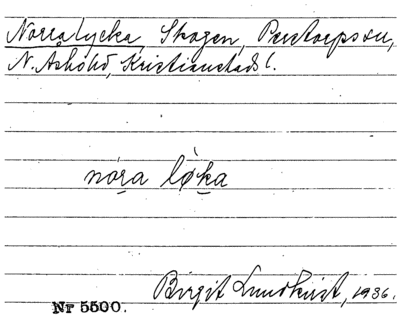 Norralycka, Skogen, Perstorps sn,
N. Åsbo hd, Kristianstads l.
nóra lø̀ka
Birgit Lundkvist, 1936.
Nr 5500.